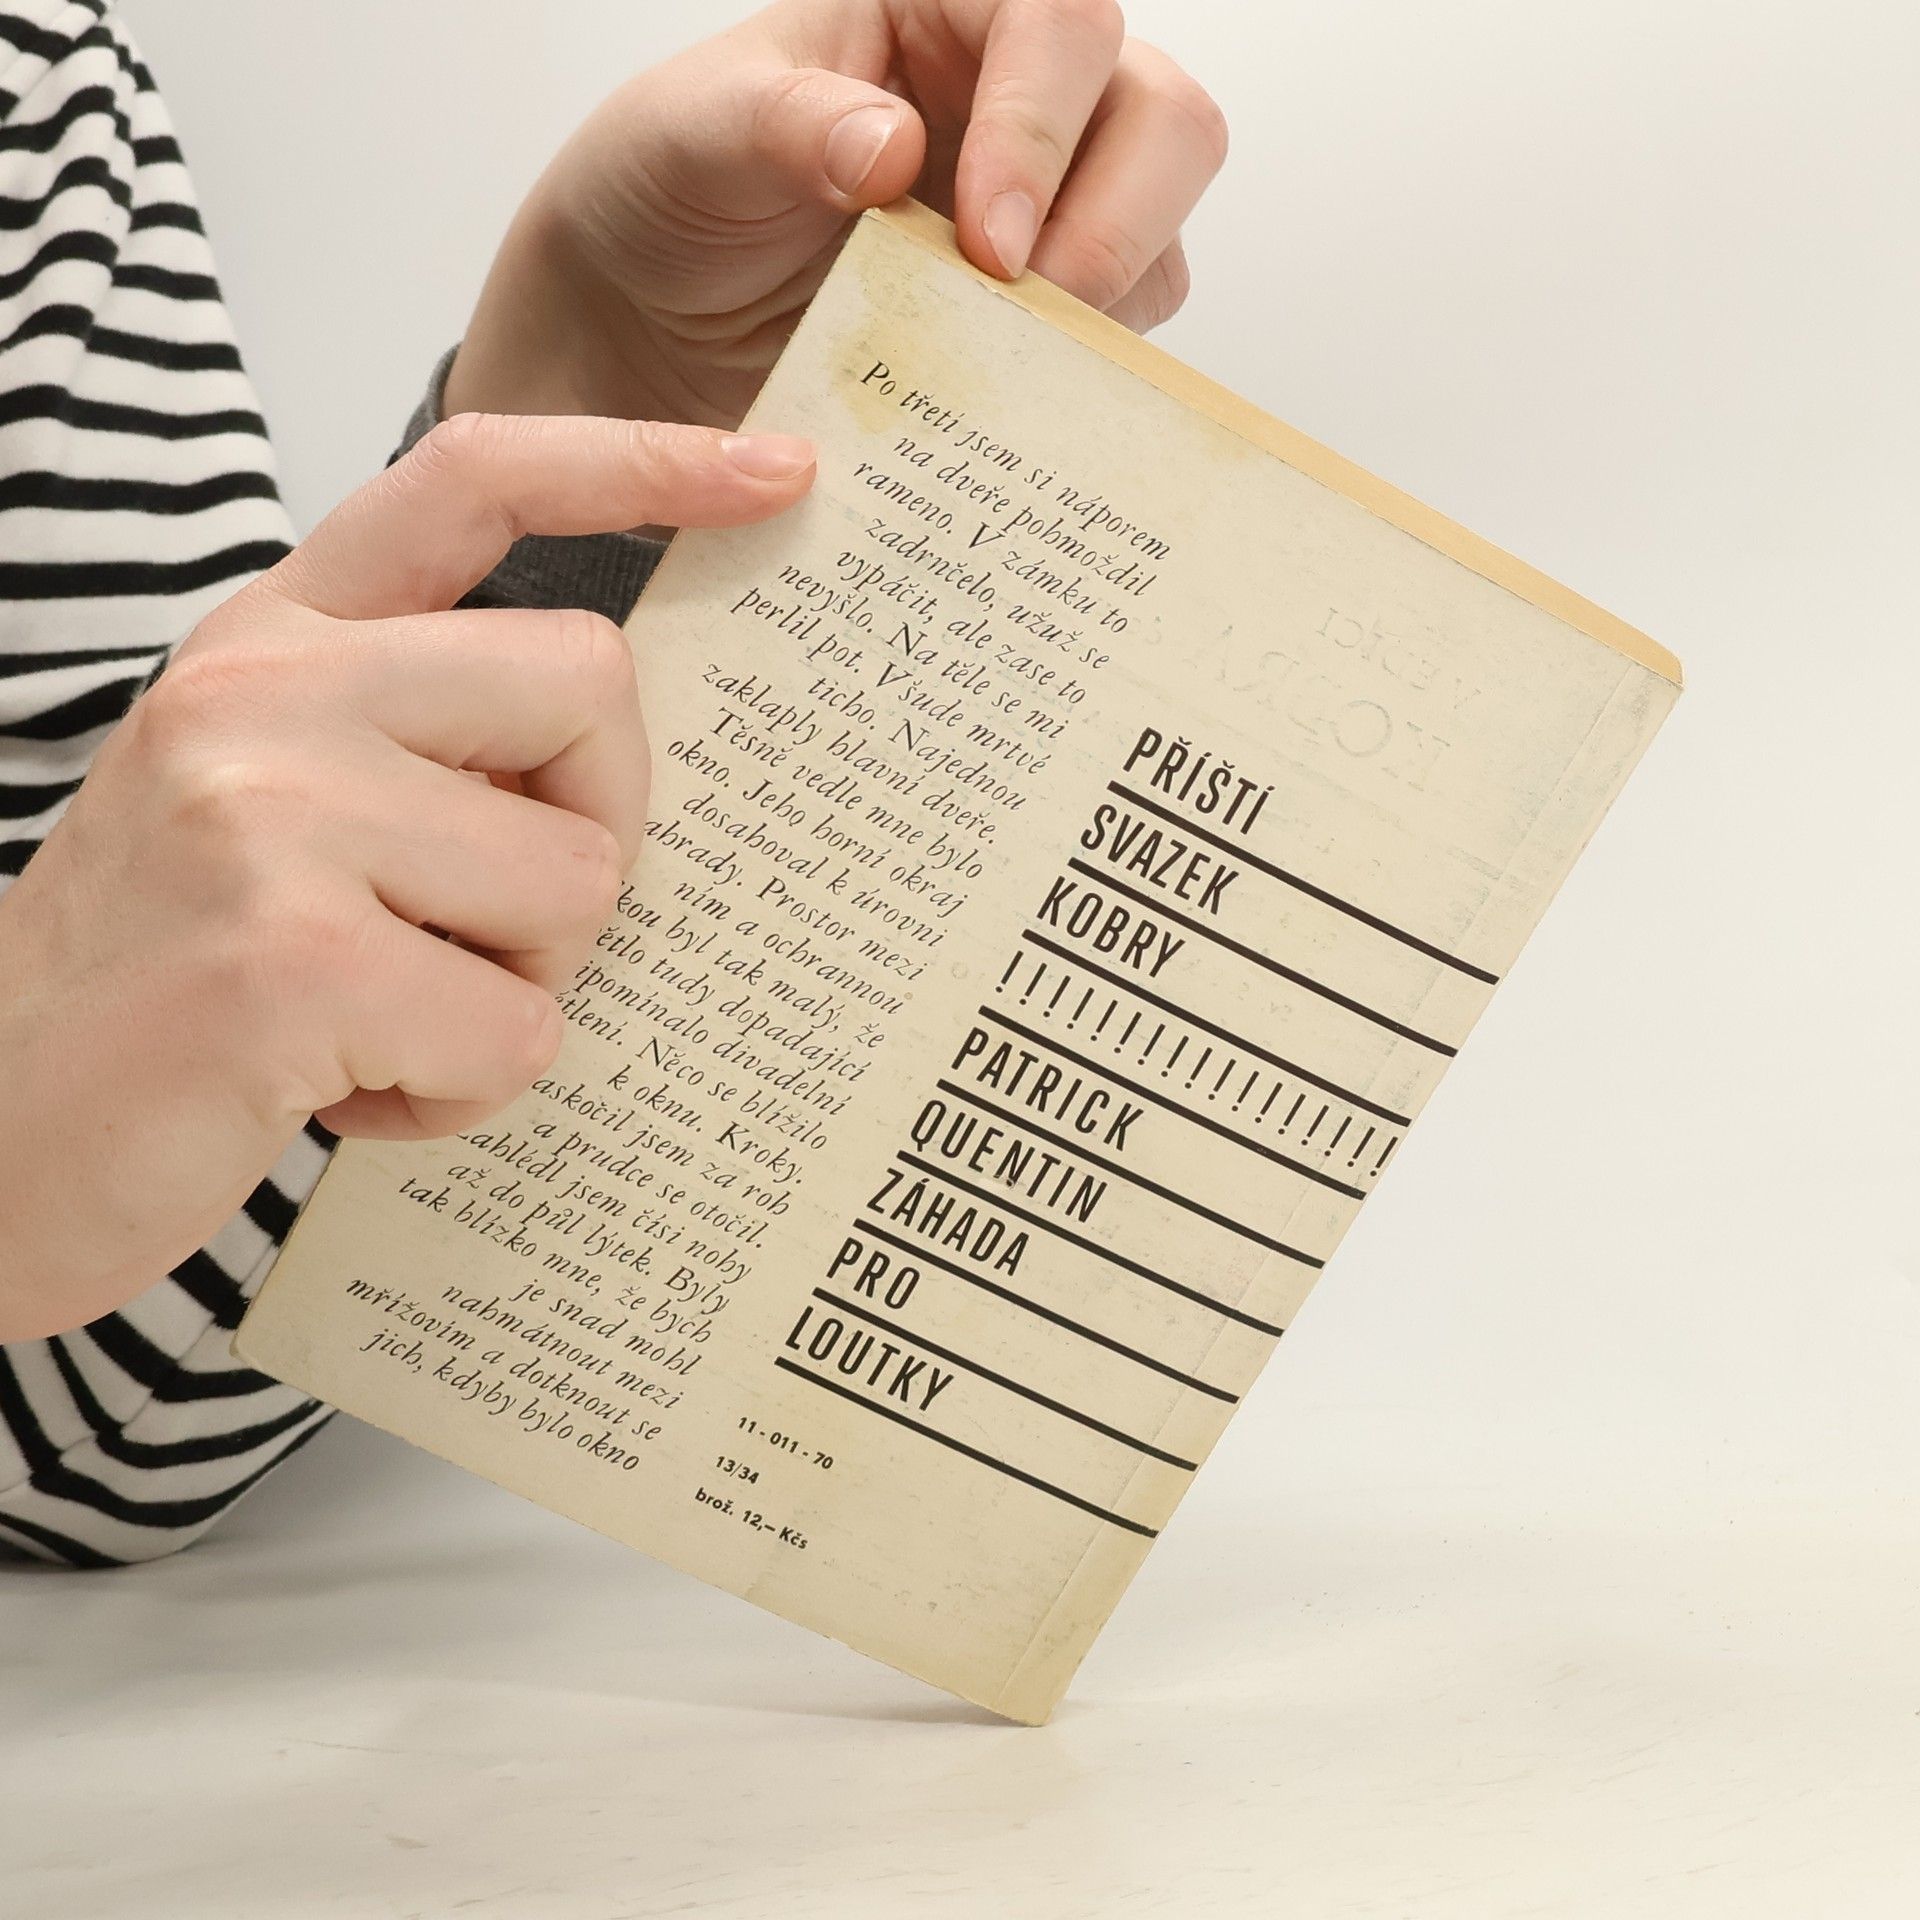 Po třetí jsem si náporem
na dveře pohmoždil
rameno. V zámku to
zadrnčelo, užuž se
vypáčit, ale zase to
nevyšlo. Na těle se mi
perlil pot. Všude mrtvé
ticho. Najednou
zaklaply hlavní dveře.
Těsně vedle mne bylo
okno. Jeho horní okraj
dosahoval k úrovni
Prostor mezi
ním a ochrannou
byl tak malý, že
tudy dopadající
divadelní
Něco se blížilo
k oknu. Kroky.
jsem za roh
a prudce se otočil.
jsem čísi nohy
až do půl lýtek. Byly
tak blízko mne, že bych
je snad mohl
nahmátnout mezi
mřížovím a dotknout se
jich, kdyby bylo okno
PŘÍŠTÍ
SVAZEK
KOBRY
!!!!!!!!!!!!!!!!!
PATRICK
QUENTIN
ZÁHADA
PRO
LOUTKY
11 - 011 - 70
13/34
brož. 12,— Kčs